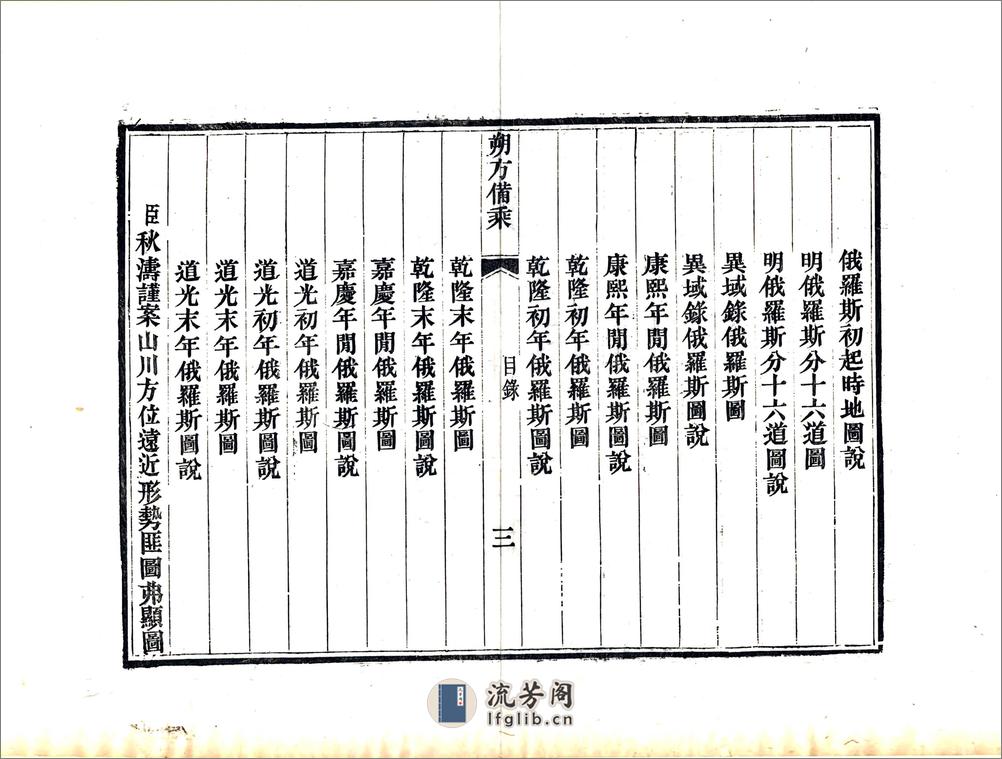 俄羅斯初起時地圖說
明俄羅斯分十六道圖
明俄羅斯分十六道圖說
異域錄俄羅斯圖
異域錄俄羅斯圖說
康熙年閒俄羅斯圖
康熙年閒俄羅斯圖說
乾隆初年俄羅斯圖
乾隆初年俄羅斯圖說
朔方備乘
目錄
三
乾隆末年俄羅斯圖
乾隆末年俄羅斯圖說
嘉慶年閒俄羅斯圖
嘉慶年閒俄羅斯圖說
道光初年俄羅斯圖
道光初年俄羅斯圖說
道光末年俄羅斯圖
道光末年俄羅斯圖說
臣秋濤謹案山川方位遠近形勢匪圖弗顯圖
流芳阁
lfglib.cn